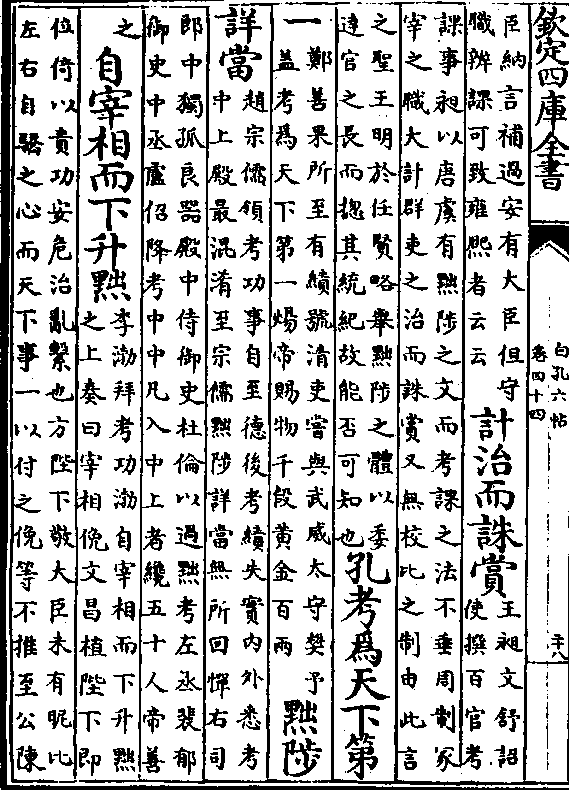 欽定四庫全書
白孔六帖
卷四十四
二十八
臣納言補過安有大臣但守
職辨課可致雍熙者云云
計治而誅賞
王昶文舒詔
使撰百官考
課事昶以唐虞有黜陟之文而考課之法不垂周制冢
宰之職大計群吏之治而誅賞又無校比之制由此言
之聖王明於任賢略舉黜陟之體以委
達官之長而揔其統紀故能否可知也
孔考爲天下第
一
鄭善果所至有績號清吏嘗與武威太守樊子
蓋考爲天下第一煬帝賜物千段黄金百兩
黜陟
詳當
趙宗儒領考功事自至德後考績失實内外悉考
中上殿最混淆至宗儒黜陟詳當無所回憚右司
郎中獨孤良器殿中侍御史杜倫以過黜考左丞裴郁
御史中丞盧佋降考中中凡入中上者纔五十人帝善
之
自宰相而下升黜
李渤拜考功渤自宰相而下升黜
之上奏曰宰相俛文昌植陛下即
位倚以責功安危治亂繫也方陛下敬大臣未有昵比
左右自驕之心而天下事一以付之俛等不推至公陳